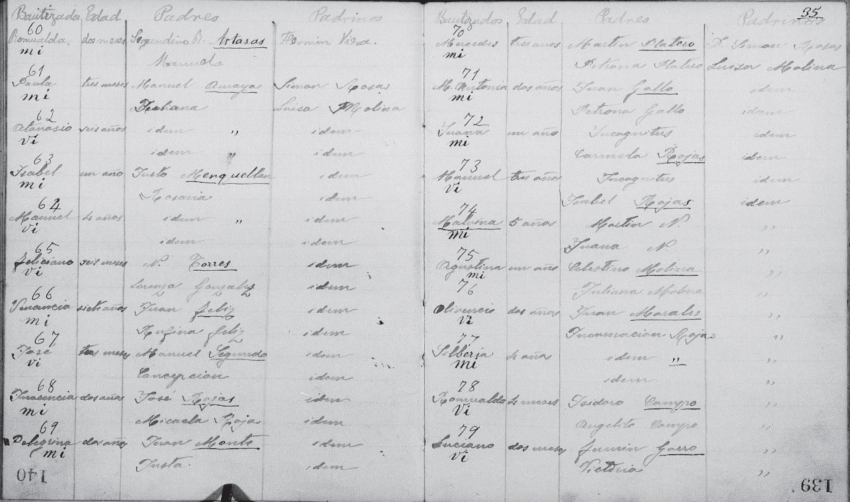 Bautizados Edad Padres Padrinos
60
Romualda dos meses Segundino A. Artasas Fermin Viera
mi Manuela
61
Paula tres meses Manuel Amaya Simon Rosas
mi Fabiana Luisa Molina
62
Atanasio seis años idem " idem
vi idem " idem
63
Isabel un año Justo idem
mi Rosaria idem
64
Manuel 4 años idem " idem
vi idem idem
65
Feliciano seis meses N. Torres idem
vi Lorenza Gonzalez idem
66
Venancia siete años Juan Feliz idem
mi Rufina Feliz idem
67
José tres meses Manuel Segundo idem
vi Concepcion idem
68
Inocencia dos años José Rojas idem
mi Micaela Rojas idem
69
Pelegrina dos años Juan Monte idem
mi Justa idem
140
35
Bautizados Edad Padres Padrinos
70
Mercedes tres meses Martin Platero D. Simon Rosas
mi Petrona Platero Luisa Molina
71
M. Antonia dos años Juan Gallo idem
mi Petrona Gallo idem
72
Juana un año Incognitus idem
mi Carmela Rojas idem
73
Manuel tres años Incognitus idem
vi Isabel Rojas idem
74
Malvina 5 años Martin N. "
mi Juana N. "
75
Agustina un año Celestino Molina "
mi Juliana Molina "
76
Olivencio dos años Juan Morales "
vi Incarnacion Rojas "
77
Silberia 4 años idem " "
mi idem "
78
Romualdo 4 meses Isodoro Campo "
vi Angelita Campo "
79
Luciano dos meses Fermin "
vi Victoria "
139